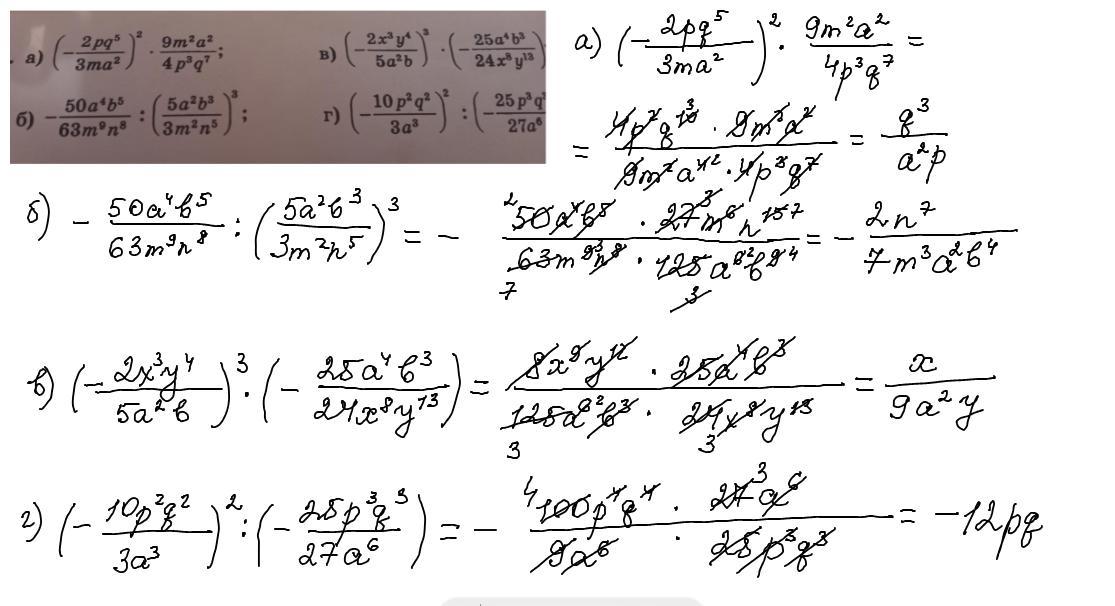 а) (-2pq⁵/3ma²)² · 9m²a²/4p³q⁷;
в) (-2x³y⁴/5a²b)³ · (-25a⁴b³/24x⁸y¹³)
б) -50a⁴b⁵/63m⁹n⁸ : (5a²b³/3m²n⁵)³;
г) (-10p²q²/3a³)² : (-25p³q³/27a⁶
а) (-2pq⁵/3ma²)² · 9m²a²/4p³q⁷ =
= 4p²q¹⁰ ³ · 9m²a²/9m²a⁴ ² · 4p³q⁷ = q³/a²p
б) -50a⁴b⁵/63m⁹n⁸ : (5a²b³/3m²n⁵)³ = - 2 50a⁴b⁵ · 27 3 m⁶n¹⁵ ⁷/7 63m⁹ ³n⁸ · 125 3 a⁶ ²b⁹ ⁴ = - 2n⁷/7m³a²b⁴
в) (-2x³y⁴/5a²b)³ · (-25a⁴b³/24x⁸y¹³) = 8x⁹y¹² · 25a⁴b³/125 3 a⁶ ²b³ · 24 3 x⁸y¹³ = x/9a²y
г) (-10p²q²/3a³)² : (-25p³q³/27a⁶) = - 4 100p⁴q⁴ · 27 3 a⁶/9a⁶ · 25p³q³ = -12pq